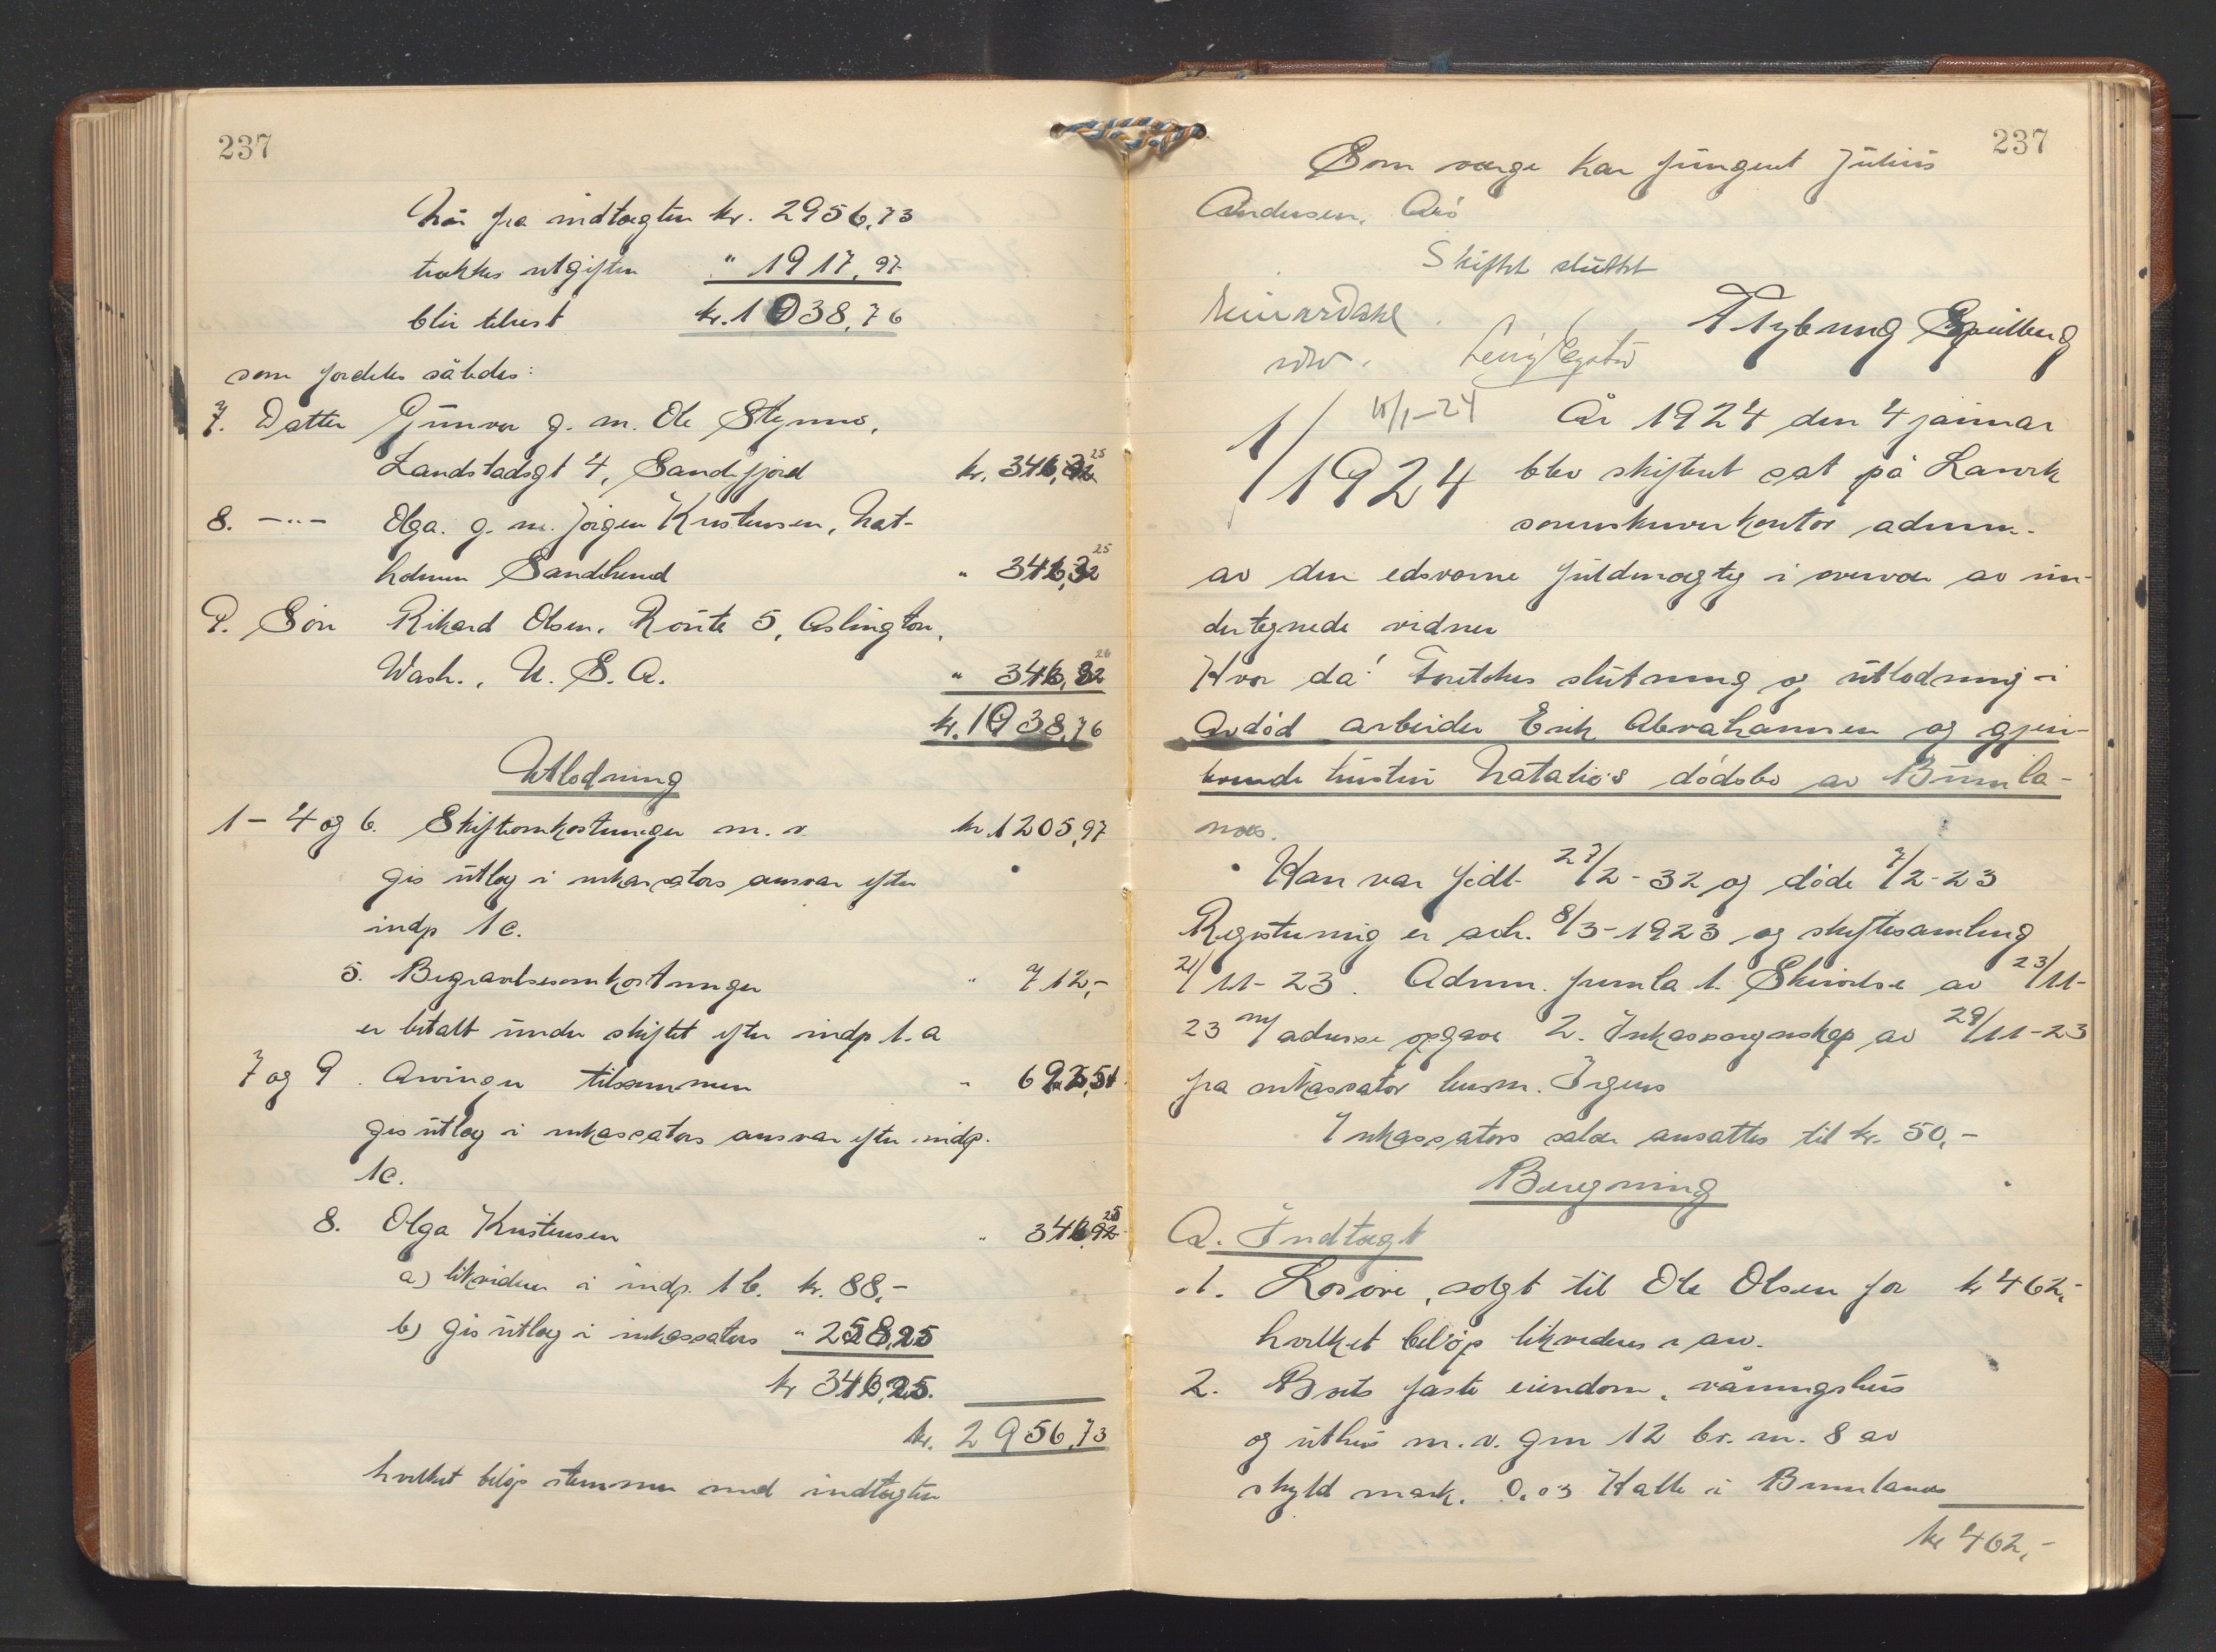 237
Når fra indtægten kr. 2956,73
trækkes utgiften " 1917,97
blir tilrest kr. 1038,76
som fordeles således:
7. Datter Gunvor g. m. Ole Stymno,
Landstadsgt 4, Sandefjord kr. 346,25
8. -"- Olga. g. m. Jörgen Kristensen, Nat-
holmen Sandeherred " 346,25
9. Sön Rikard Olsen. Route 5, Arlington,
Wash., U. S. A. " 346,26
kr. 1038,76
Utlodning
1 - 4 og 6. Skifteomkostninger m. v. kr. 1205,97
gis utlæg i inkassators ansvar efter
indp 1 c.
5. Begravelsesomkostninger " 712,-
er betalt under skiftet efter indp 1. a
7 og 9. Arvinger tilsammen " 692,51
gis utlæg i inkassators ansvar efter indp.
1c.
8. Olga Kristensen " 346,25
a) likvideres i indp. 1 b. kr. 88,-
b) gis utlæg i inkassators " 258,25
kr 346,25.
kr. 2956,73
hvilket belöp stemmer med indtægten
237
Som værge har fungert Julius
Andersen, Arö
Skiftet sluttet
Nyberg Speilberg
1/1924
15/1-24 År 1924 den 4 januar
blev skifteret sat på Larvik
sorenskriverkontor admin.
av den edsvorne fuldmægtig i overvær av un-
dertegnede vidner
Hvor da: Foretokes slutning og utlodning i
avdöd arbeider Erik Abrahamsen og gjen-
levende hustru Natalie's dödsbo av Brunla-
nes.
Han var född 27/2-32 og döde 7/2-23
Registrering er avh. 8/3-1923 og skiftesamling
21/11-23. Admin. fremla 1. Skrivelse av 23/11-
23 m/ adresse opgave 2. Inkassoregnskap av 29/11-23
fra inkassator lensm. Jrgens
Inkassators salær ansattes til kr. 50,-
Beregning
A. Indtægt
1. Lösöre, solgt til Ole Olsen for kr 462,-
hvilket belöp likvideres i arv.
2. Boets faste eiendom, våningshus
og uthus m. v. gnr 12 br. nr. 8 av
skyld mark. 0,03 Halle i Brunlanes
kr 462,-